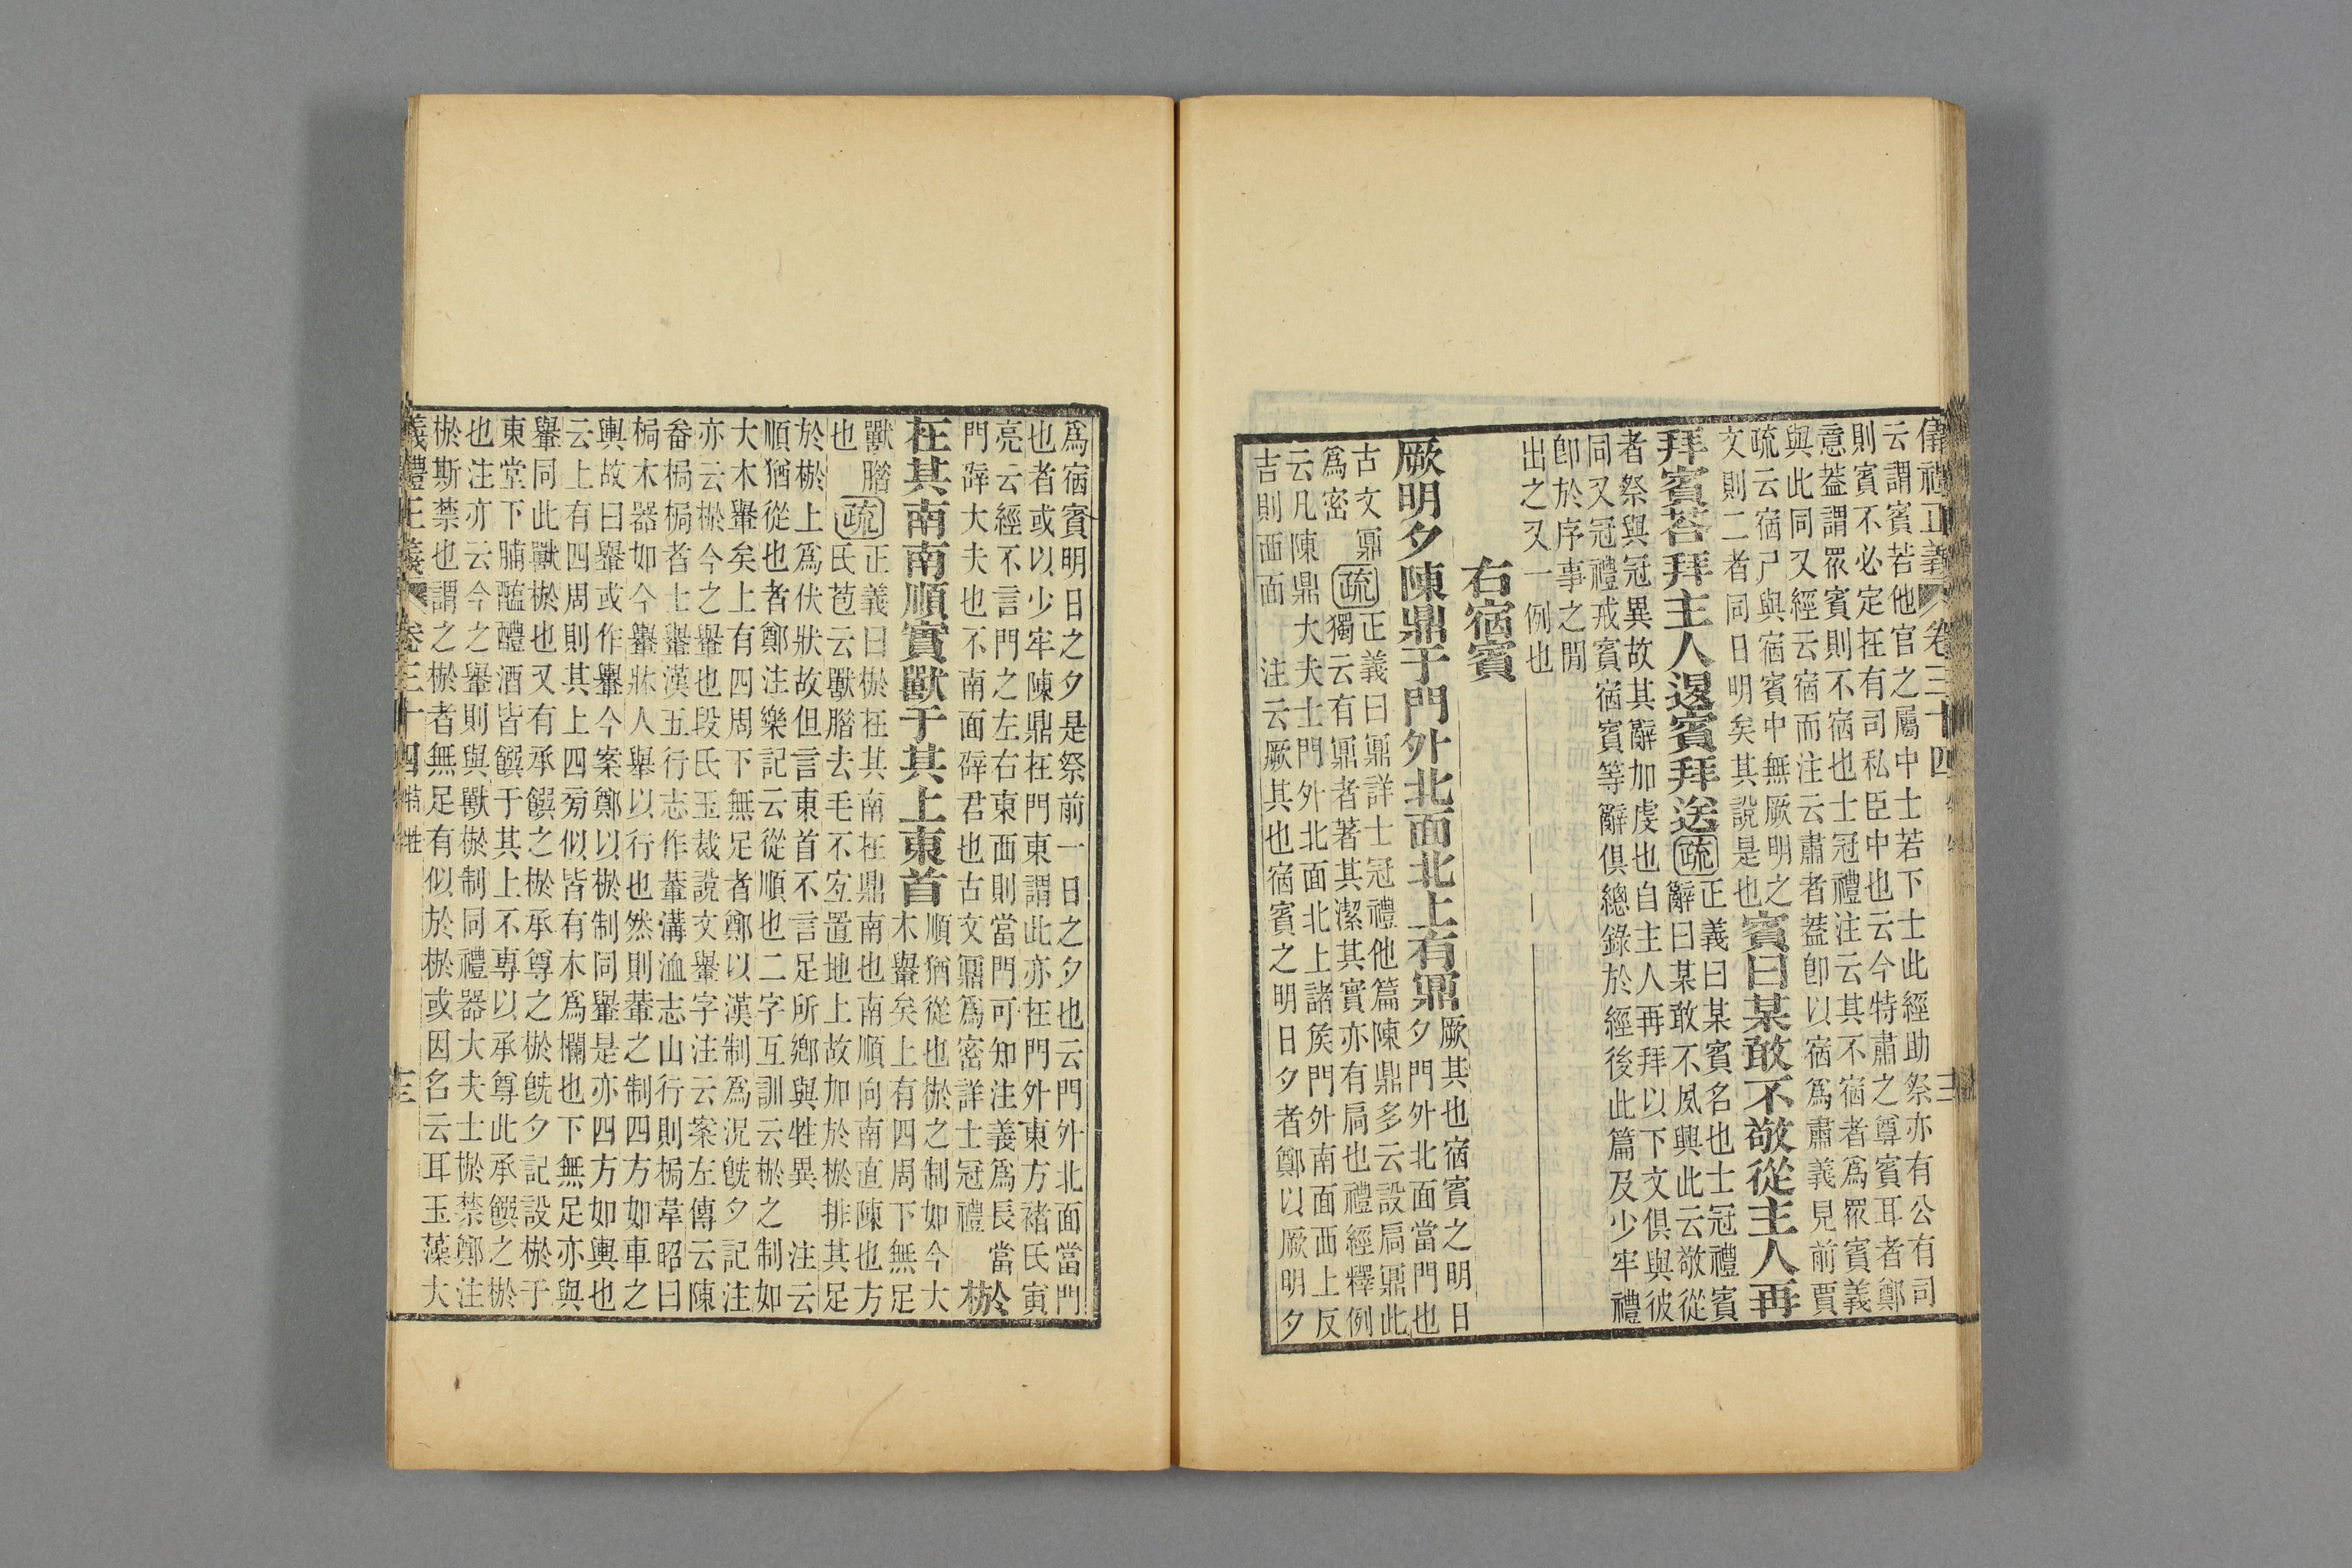 儀禮正義 卷三十四
云謂賓若他官之屬中士若下士此經助祭亦有公有司
則賓不必定在有司私臣中也云今特肅之尊賓耳者鄭
意蓋謂眾賓則不宿也士冠禮注云其不宿者爲眾賓義
與此同又經云宿而注云肅者蓋卽以宿爲肅義見前賈
疏云宿尸與宿賓中無厥明之
文則二者同日明矣其說是也
賓曰某敢不敬從主人再
拜賓荅拜主人退賓拜送疏
正義曰某賓名也士冠禮賓
辭曰某敢不夙興此云敬從
者祭與冠異故其辭加虔也自主人再拜以下文俱與彼
同又冠禮戒賓宿賓等辭俱總錄於經後此篇及少牢禮
卽於序事之閒
出之又一例也
右宿賓
厥明夕陳鼎于門外北面北上有鼏
厥其也宿賓之明日
夕門外北面當門也
古文鼏
爲密
疏
正義曰鼏詳士冠禮他篇陳鼎多云設扃鼏此
獨云有鼏者著其潔其實亦有扃也禮經釋例
云凡陳鼎大夫士門外北面北上諸矦門外南面西上反
吉則西面 注云厥其也宿賓之明日夕者鄭以厥明夕
爲宿賓明日之夕是祭前一日之夕也云門外北面當門
也者或以少牢陳鼎在門東謂此亦在門外東方褚氏寅
亮云經不言門之左右東西則當門可知注義爲長當
門辟大夫也不南面辟君也古文鼏爲密詳士冠禮
棜
在其南南順實獸于其上東首
順猶從也棜之制如今大
木轝矣上有四周下無足
獸腊
也
疏
正義曰棜在其南在鼎南也南順向南直陳也方
氏苞云獸腊去毛不宐置地上故加於棜排其足
於棜上爲伏狀故但言東首不言足所鄉與牲異 注云
順猶從也者鄭注樂記云從順也二字互訓云棜之制如
大木轝矣上有四周下無足者鄭以漢制爲況旣夕記注
亦云棜今之轝也段氏玉裁說文轝字注云案左傳云陳
畚挶挶者士轝漢五行志作輂溝洫志山行則梮韋昭曰
梮木器如今轝牀人舉以行也然則輂之制四方如車之
輿故曰轝或作轝今案鄭以棜制同轝是亦四方如輿也
云上有四周則其上四旁似皆有木爲欄也下無足亦與
轝同此獸棜也又有承饌之棜承尊之棜旣夕記設棜于
東堂下脯醢醴酒皆饌于其上不專以承尊此承饌之棜
也注亦云今之轝則與獸棜制同禮器大夫士棜禁鄭注
棜斯禁也謂之棜者無足有似於棜或因名云耳玉藻大
義禮正義 卷三十四 特牲